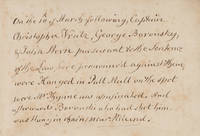 On the 10 of March following, Captain
Christopher Vratz, George Borowsky,
& John Stern pursuant to the Sentence
of the Law, here pronounced against them,
were Hanged in Pall Mall on the spot
were Mr Thynne was assassinated. And
afterwards Borowski who had shot him
was Hung in chains near Mile end.